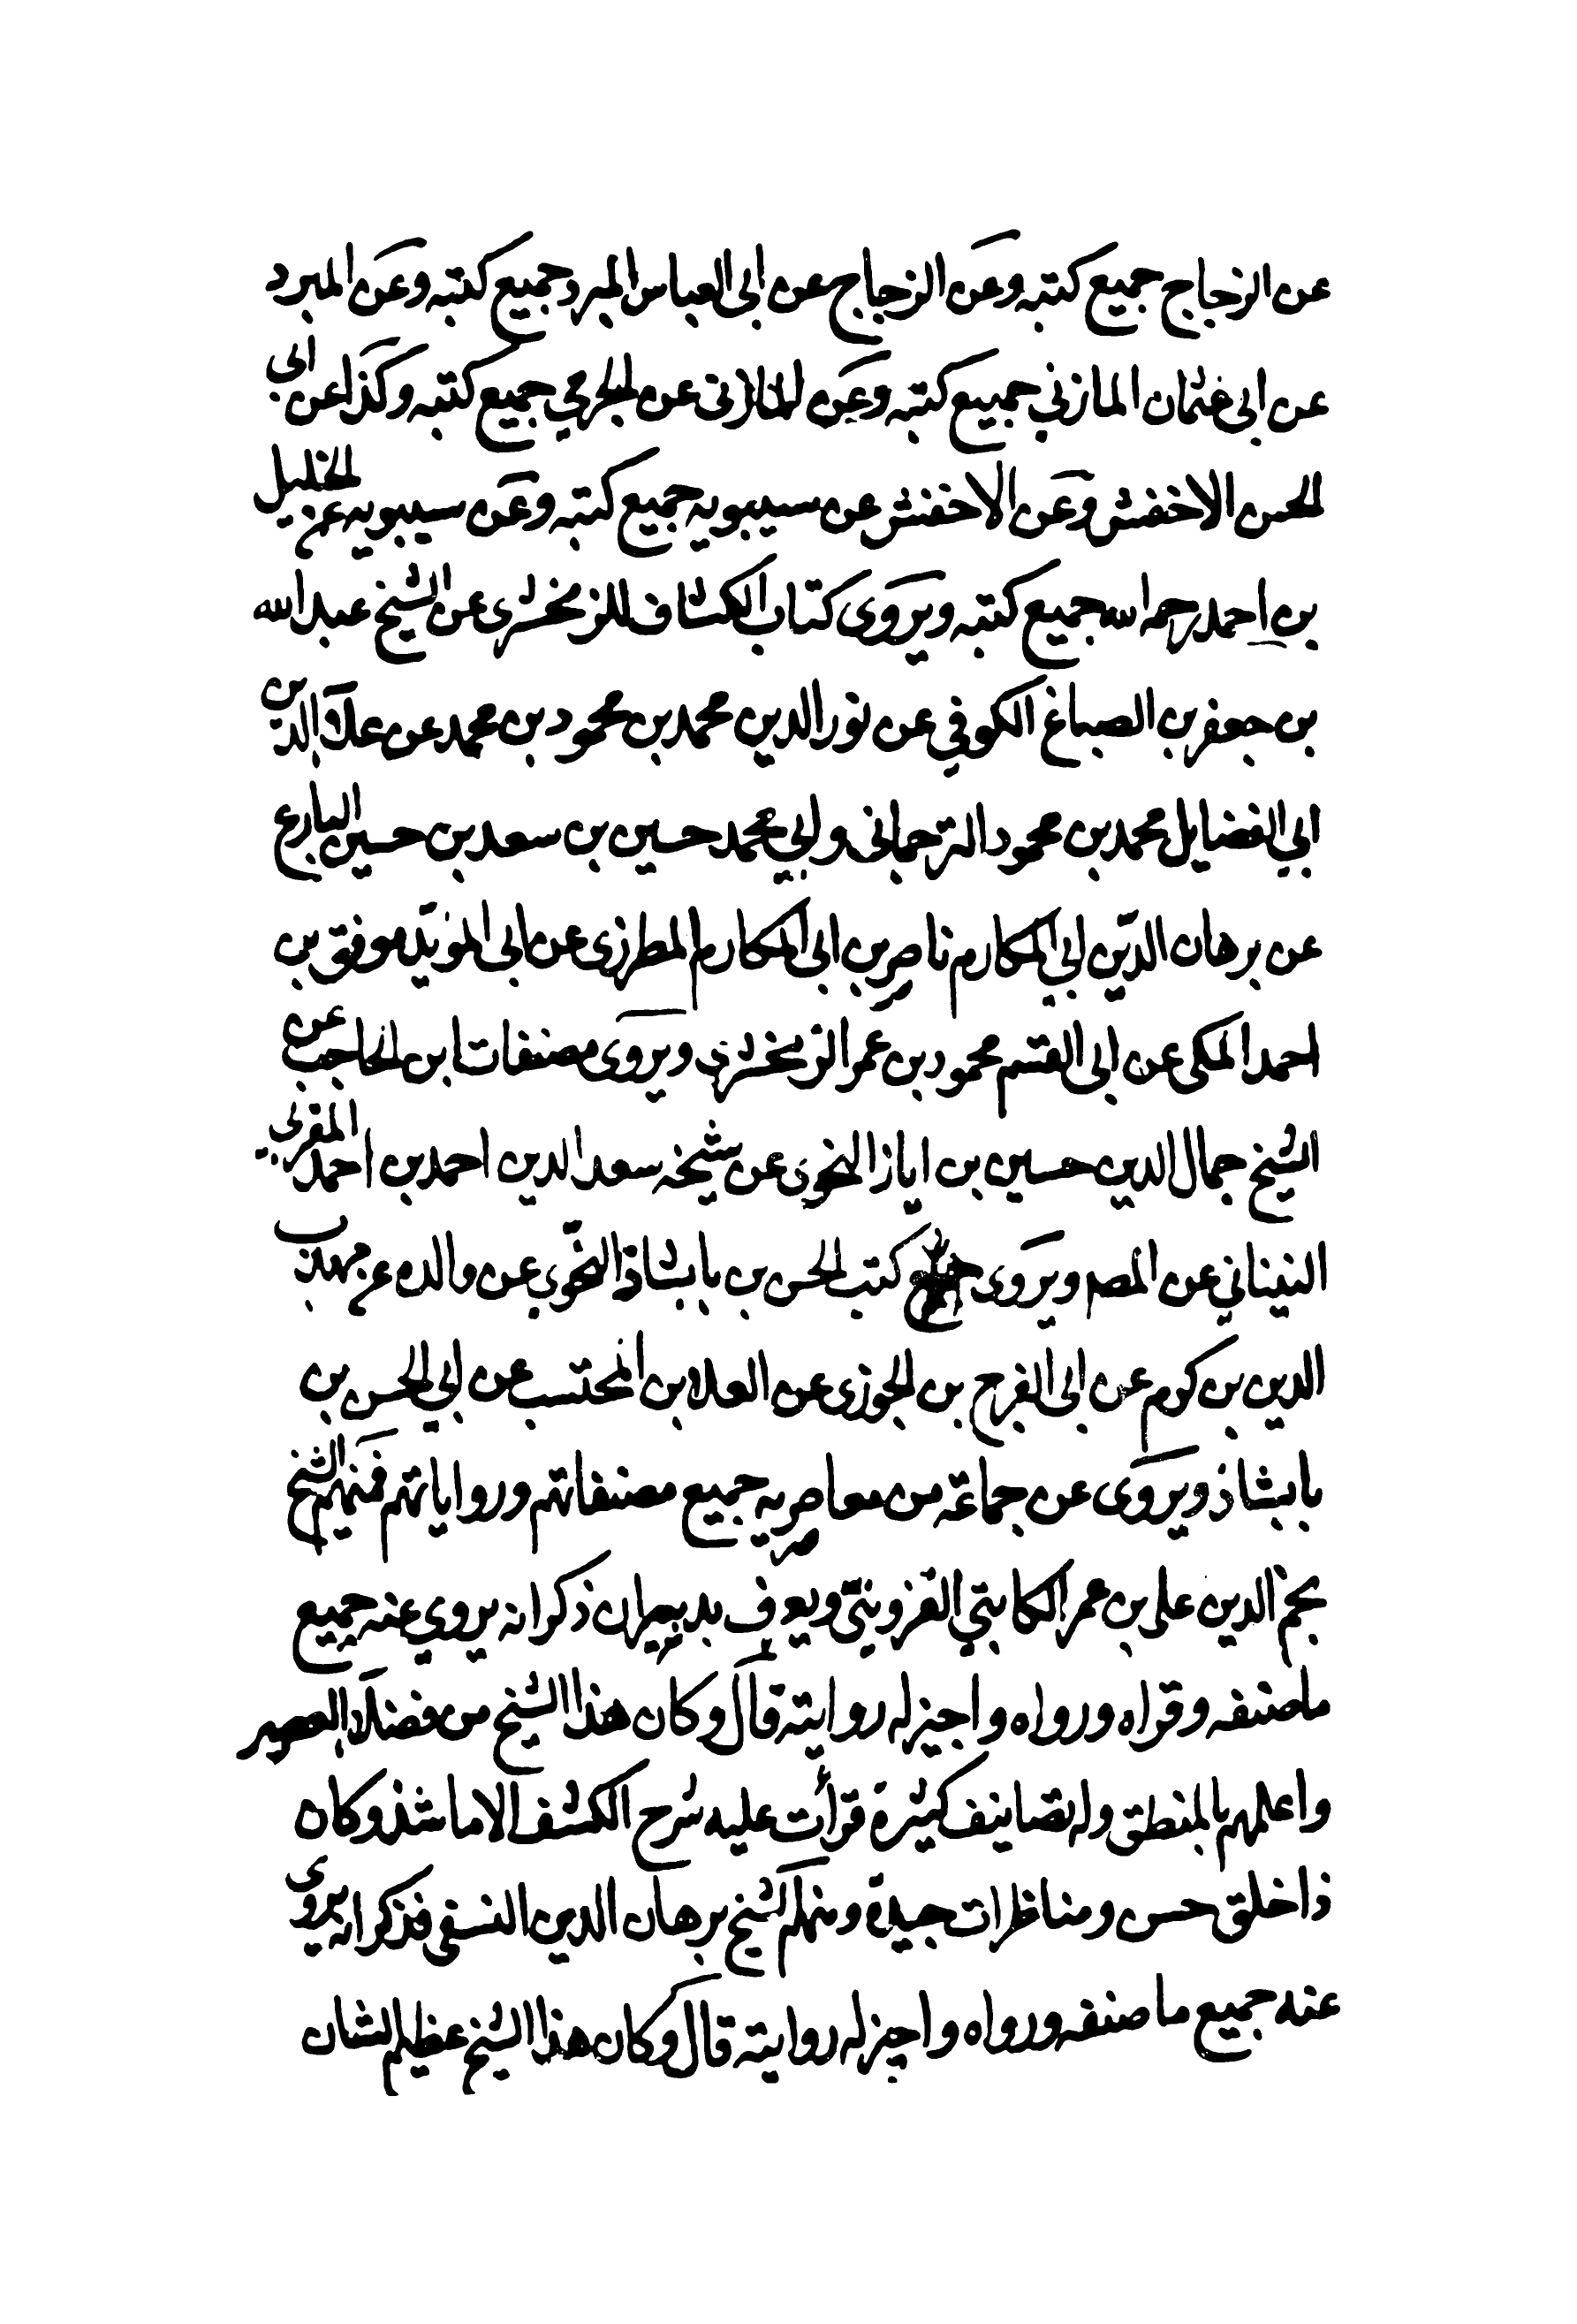 عن الزجاج جميع كتبه وعن الزجاج عن ابى العباس المبرد جميع كتبه وعن المبرد
عن ابى عثمان المازني جميع كتبه وعن المازنى عن الجرمي جميع كتبه وكذا عن ابى
الحسن الاخفش وعن الاخفش عن سيبويه جميع كتبه وعن سيبويه عن الخليل
بن احمد رحمه الله جميع كتبه ويروى كتاب الكشاف للزمخشرى عن الشيخ عبد الله
بن جعفر بن الصباغ الكوفي عن نور الدين محمد بن محمود بن محمد عن علاء الدين
ابي الفضايل محمد بن محمود الترجمانى وابي محمد حسين بن سعد بن حسين البارع
عن برهان الدين ابي المكارم ناصر بن ابى المكارم المطرزى عن ابى المؤيد موفق بن
احمد المكى عن ابى القسم محمود بن عمر الزمخشرى ويروى مصنفات ابن الحاجب عن
الشيخ جمال الدين حسين بن اياز النحوى عن شيخه سعد الدين احمد بن احمد المقرى
عن المص ويروى جميع كتب الحسن بن بابشاذ النحوي عن والده عن مهذب
الدين بن كرم عن ابى الفرج بن الجوزى عن العلا بن المحتسب عن ابي الحسن بن
بابشاذ ويروى عن جماعة من معاصريه جميع مصنفاتهم ورواياتهم فمنهم الشيخ
نجم الدين على بن عمر الكاتبي القزويني ويعرف بدبيران ذكر انه يروي عنه جميع
ما صنفه وقراه ورواه واجيز له روايته قال وكان هذا الشيخ من فضلاء العصر
واعلمهم بالمنطق وله تصانيف كثيرة قرأت عليه شرح الكشف الا ما شذ وكان
ذا خلق حسن ومناظرات جيدة ومنهم الشيخ برهان الدين النسفى فذكر انه يروى
عنه جميع ما صنفه ورواه واجيز له روايته قال وكان هذا الشيخ عظيم الشان